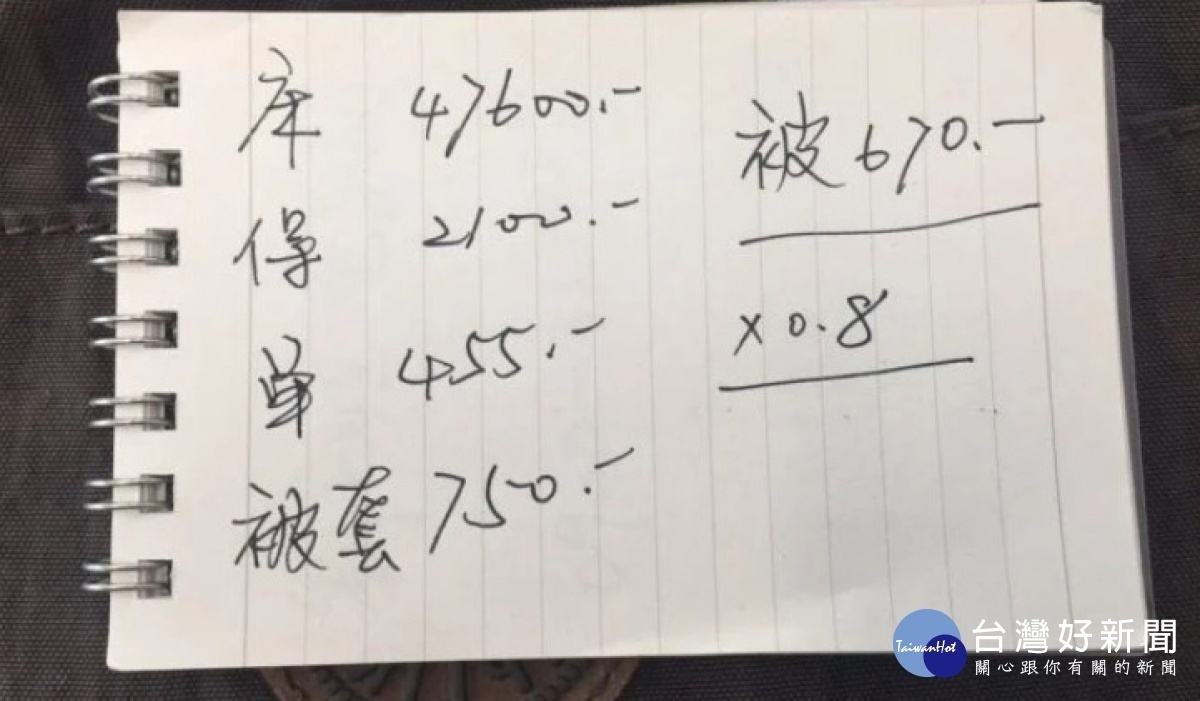 床 47600.-
保 2100.-
單 455.-
被套 750.-
被 670.-
x 0.8
TaiwanHot
台灣好新聞
關心跟你有關的新聞